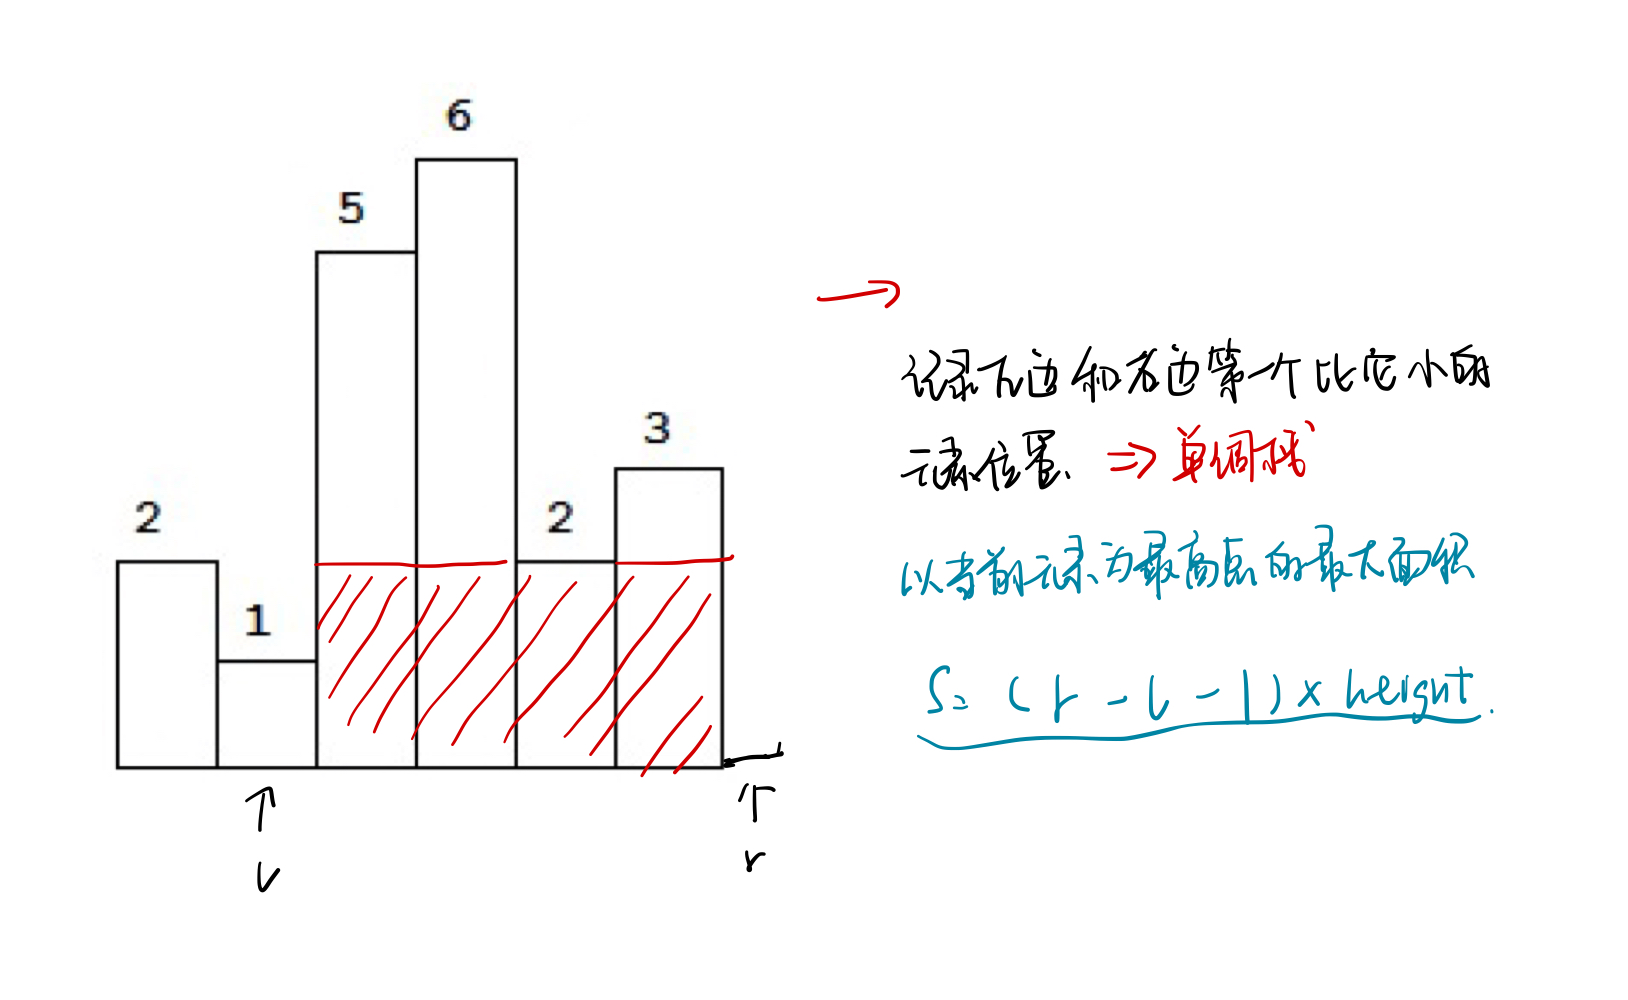 6
5
3
2
2
1
记录左边和右边第一个比它小的
元素位置. ⇒ 单调栈
以当前元素为最高点的最大面积
S = (r - l - 1) × height.
l
r